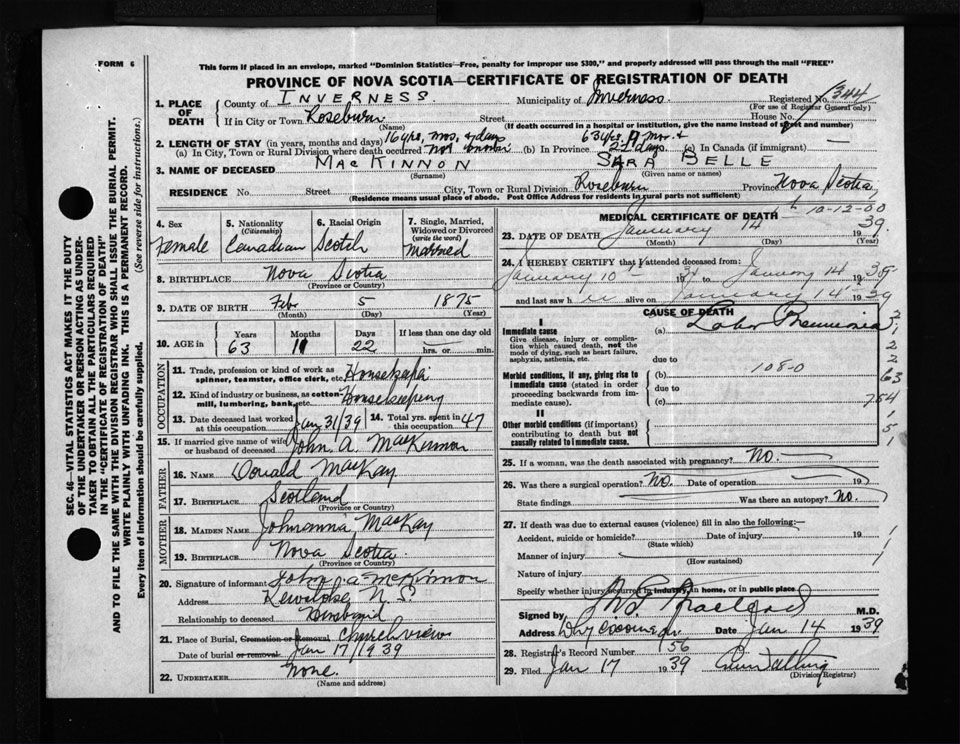 FORM 6
This form if placed in an envelope, marked "Dominion Statistics—Free, penalty for improper use $300," and properly addressed will pass through the mail "FREE"
PROVINCE OF NOVA SCOTIA—CERTIFICATE OF REGISTRATION OF DEATH
SEC. 46—VITAL STATISTICS ACT MAKES IT THE DUTY
OF THE UNDERTAKER OR PERSON ACTING AS UNDER-
TAKER TO OBTAIN ALL THE PARTICULARS REQUIRED
IN THE "CERTIFICATE OF REGISTRATION OF DEATH"
AND TO FILE THE SAME WITH THE DIVISION REGISTRAR WHO SHALL ISSUE THE BURIAL PERMIT.
WRITE PLAINLY WITH UNFADING INK. THIS IS A PERMANENT RECORD.
Every item of information should be carefully supplied. (See reverse side for instructions.)
1. PLACE OF DEATH
County of INVERNESS Municipality of Inverness Registered No. 344
(For use of Registrar General only)
If in City or Town Roseburn Street House No.
(Name) (If death occurred in a hospital or institution, give the name instead of street and number)
2. LENGTH OF STAY (in years, months and days) 16 yrs, mos, & days 63 yrs 11 mos. &
(a) In City, Town or Rural Division where death occurred not known (b) In Province 22 days (c) In Canada (if immigrant) —
3. NAME OF DECEASED MacKINNON SARA BELLE
(Surname) (Given name or names)
RESIDENCE No. Street City, Town or Rural Division Roseburn Province Nova Scotia
(Residence means usual place of abode. Post Office Address for residents in rural parts not sufficient)
4. Sex
Female
5. Nationality
(Citizenship)
Canadian
6. Racial Origin
Scotch
7. Single, Married,
Widowed or Divorced
(write the word)
Married
8. BIRTHPLACE Nova Scotia
(Province or Country)
9. DATE OF BIRTH Feb 5 1875
(Month) (Day) (Year)
10. AGE in Years Months Days If less than one day old
63 11 22 hrs. or min.
OCCUPATION
11. Trade, profession or kind of work as
spinner, teamster, office clerk, etc. Housekeeper
12. Kind of industry or business, as cotton-
mill, lumbering, bank, etc. Housekeeping
13. Date deceased last worked
at this occupation Jan 31/39
14. Total yrs. spent in
this occupation 47
15. If married give name of wife
or husband of deceased John A. MacKinnon
FATHER
16. NAME Donald MacKay
17. BIRTHPLACE Scotland
(Province or Country)
MOTHER
18. MAIDEN NAME Johnanna MacKay
19. BIRTHPLACE Nova Scotia
(Province or Country)
20. Signature of informant John A McKinnon
Address N.S.
Relationship to deceased Husband
21. Place of Burial, Cremation or Removal Churchview
Date of burial or removal Jan 17/1939
22. UNDERTAKER None.
(Name and address)
MEDICAL CERTIFICATE OF DEATH
10-12-00
23. DATE OF DEATH January 14th 1939.
(Month) (Day) (Year)
24. I HEREBY CERTIFY that I attended deceased from:
January 10 1939 to January 14 1939
and last saw her alive on January 14 1939
CAUSE OF DEATH
I
Immediate cause
Give disease, injury or complica-
tion which caused death, not the
mode of dying, such as heart failure,
asphyxia, asthenia, etc.
(a) Lobar Pneumonia
due to
Morbid conditions, if any, giving rise to
immediate cause (stated in order
proceeding backwards from im-
mediate cause).
(b) 108-0
due to
(c)
II
Other morbid conditions (if important)
contributing to death but not
causally related to immediate cause.
3
1
2
2
63
754
1
5
1
25. If a woman, was the death associated with pregnancy? No.
26. Was there a surgical operation? No. Date of operation 19
State findings Was there an autopsy? No.
27. If death was due to external causes (violence) fill in also the following:—
Accident, suicide or homicide? Date of injury 19
(State which)
Manner of injury
(How sustained)
Nature of injury
Specify whether injury occurred in industry, in home, or in public place
Signed by MacLeod M.D.
Address Whycocomagh Date Jan 14 1939
28. Registrar's Record Number 156
29. Filed Jan 17 1939
(Division Registrar)